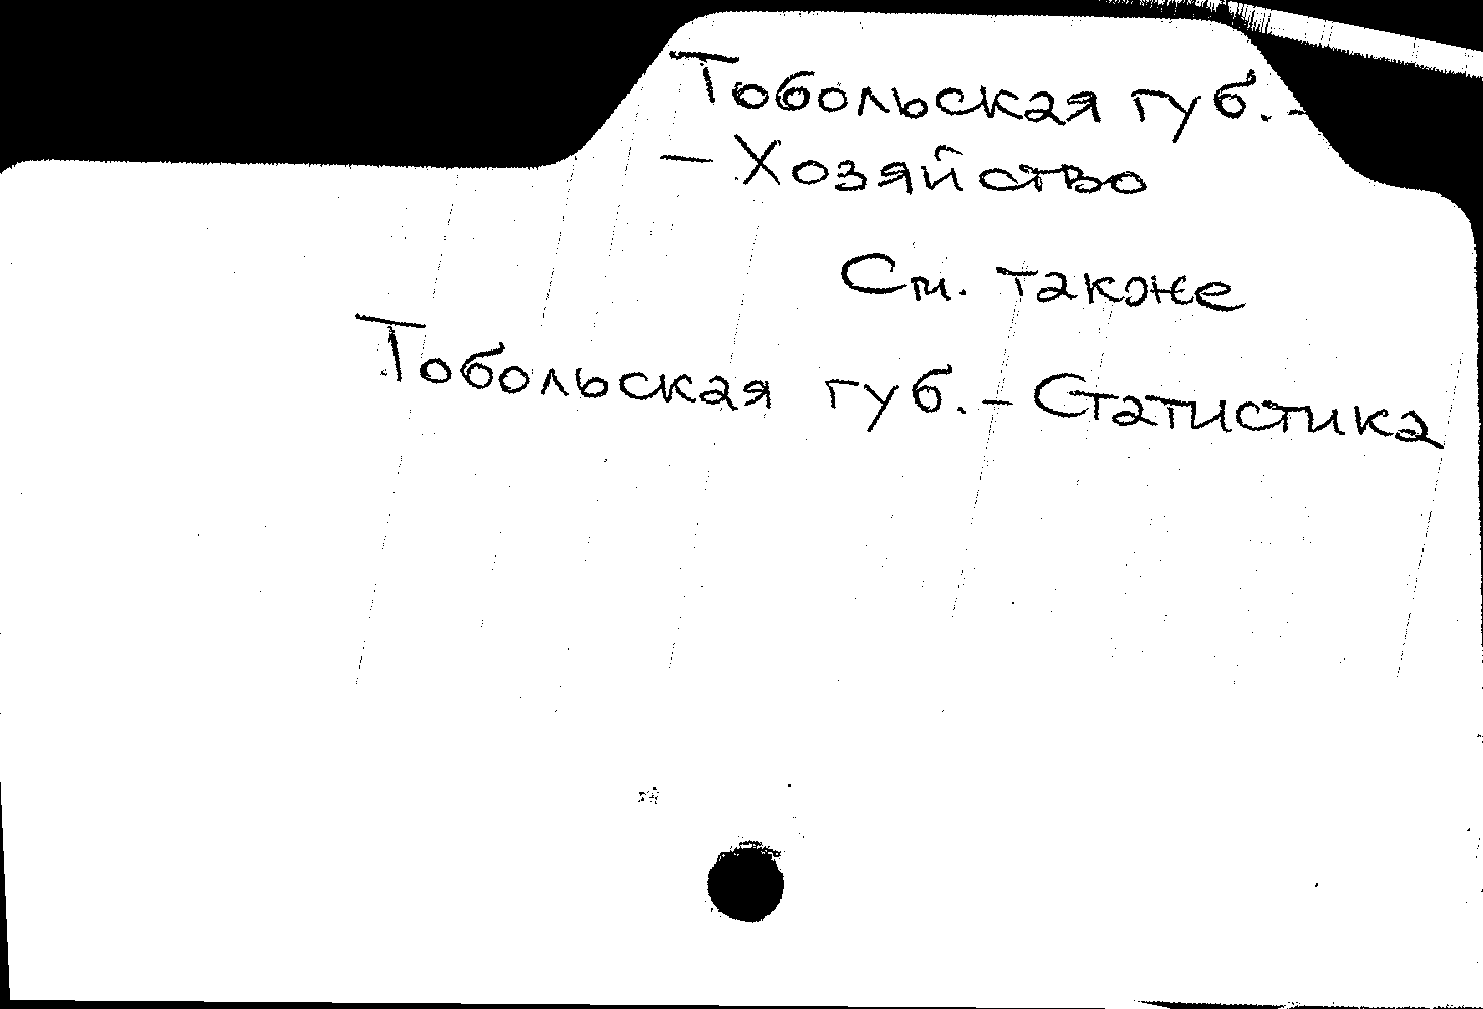 Тобольская губ. -
- Хозяйство
См. также
Тобольская губ. - Статистика